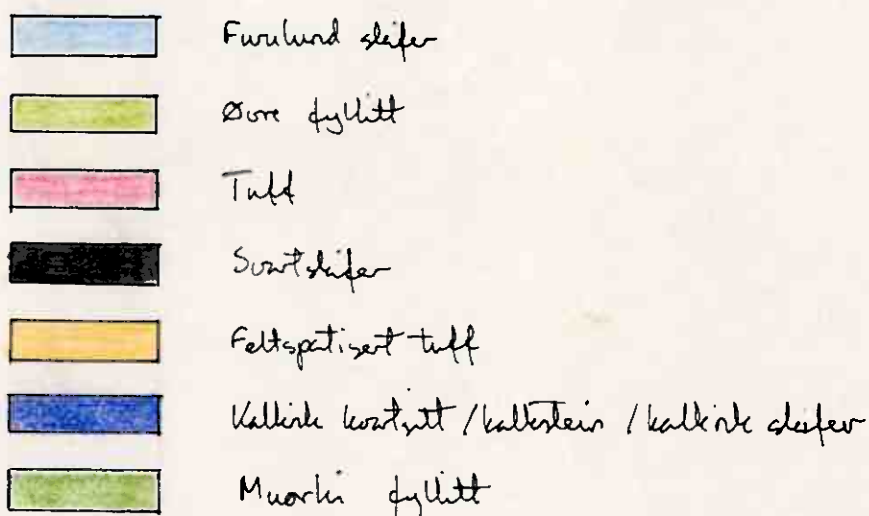 Furulund skifer
Øvre fyllitt
Tuff
Svartskifer
Feltspatisert tuff
Kalkrik kvartsitt / kalkstein / kalkrik skifer
Muorki fyllitt